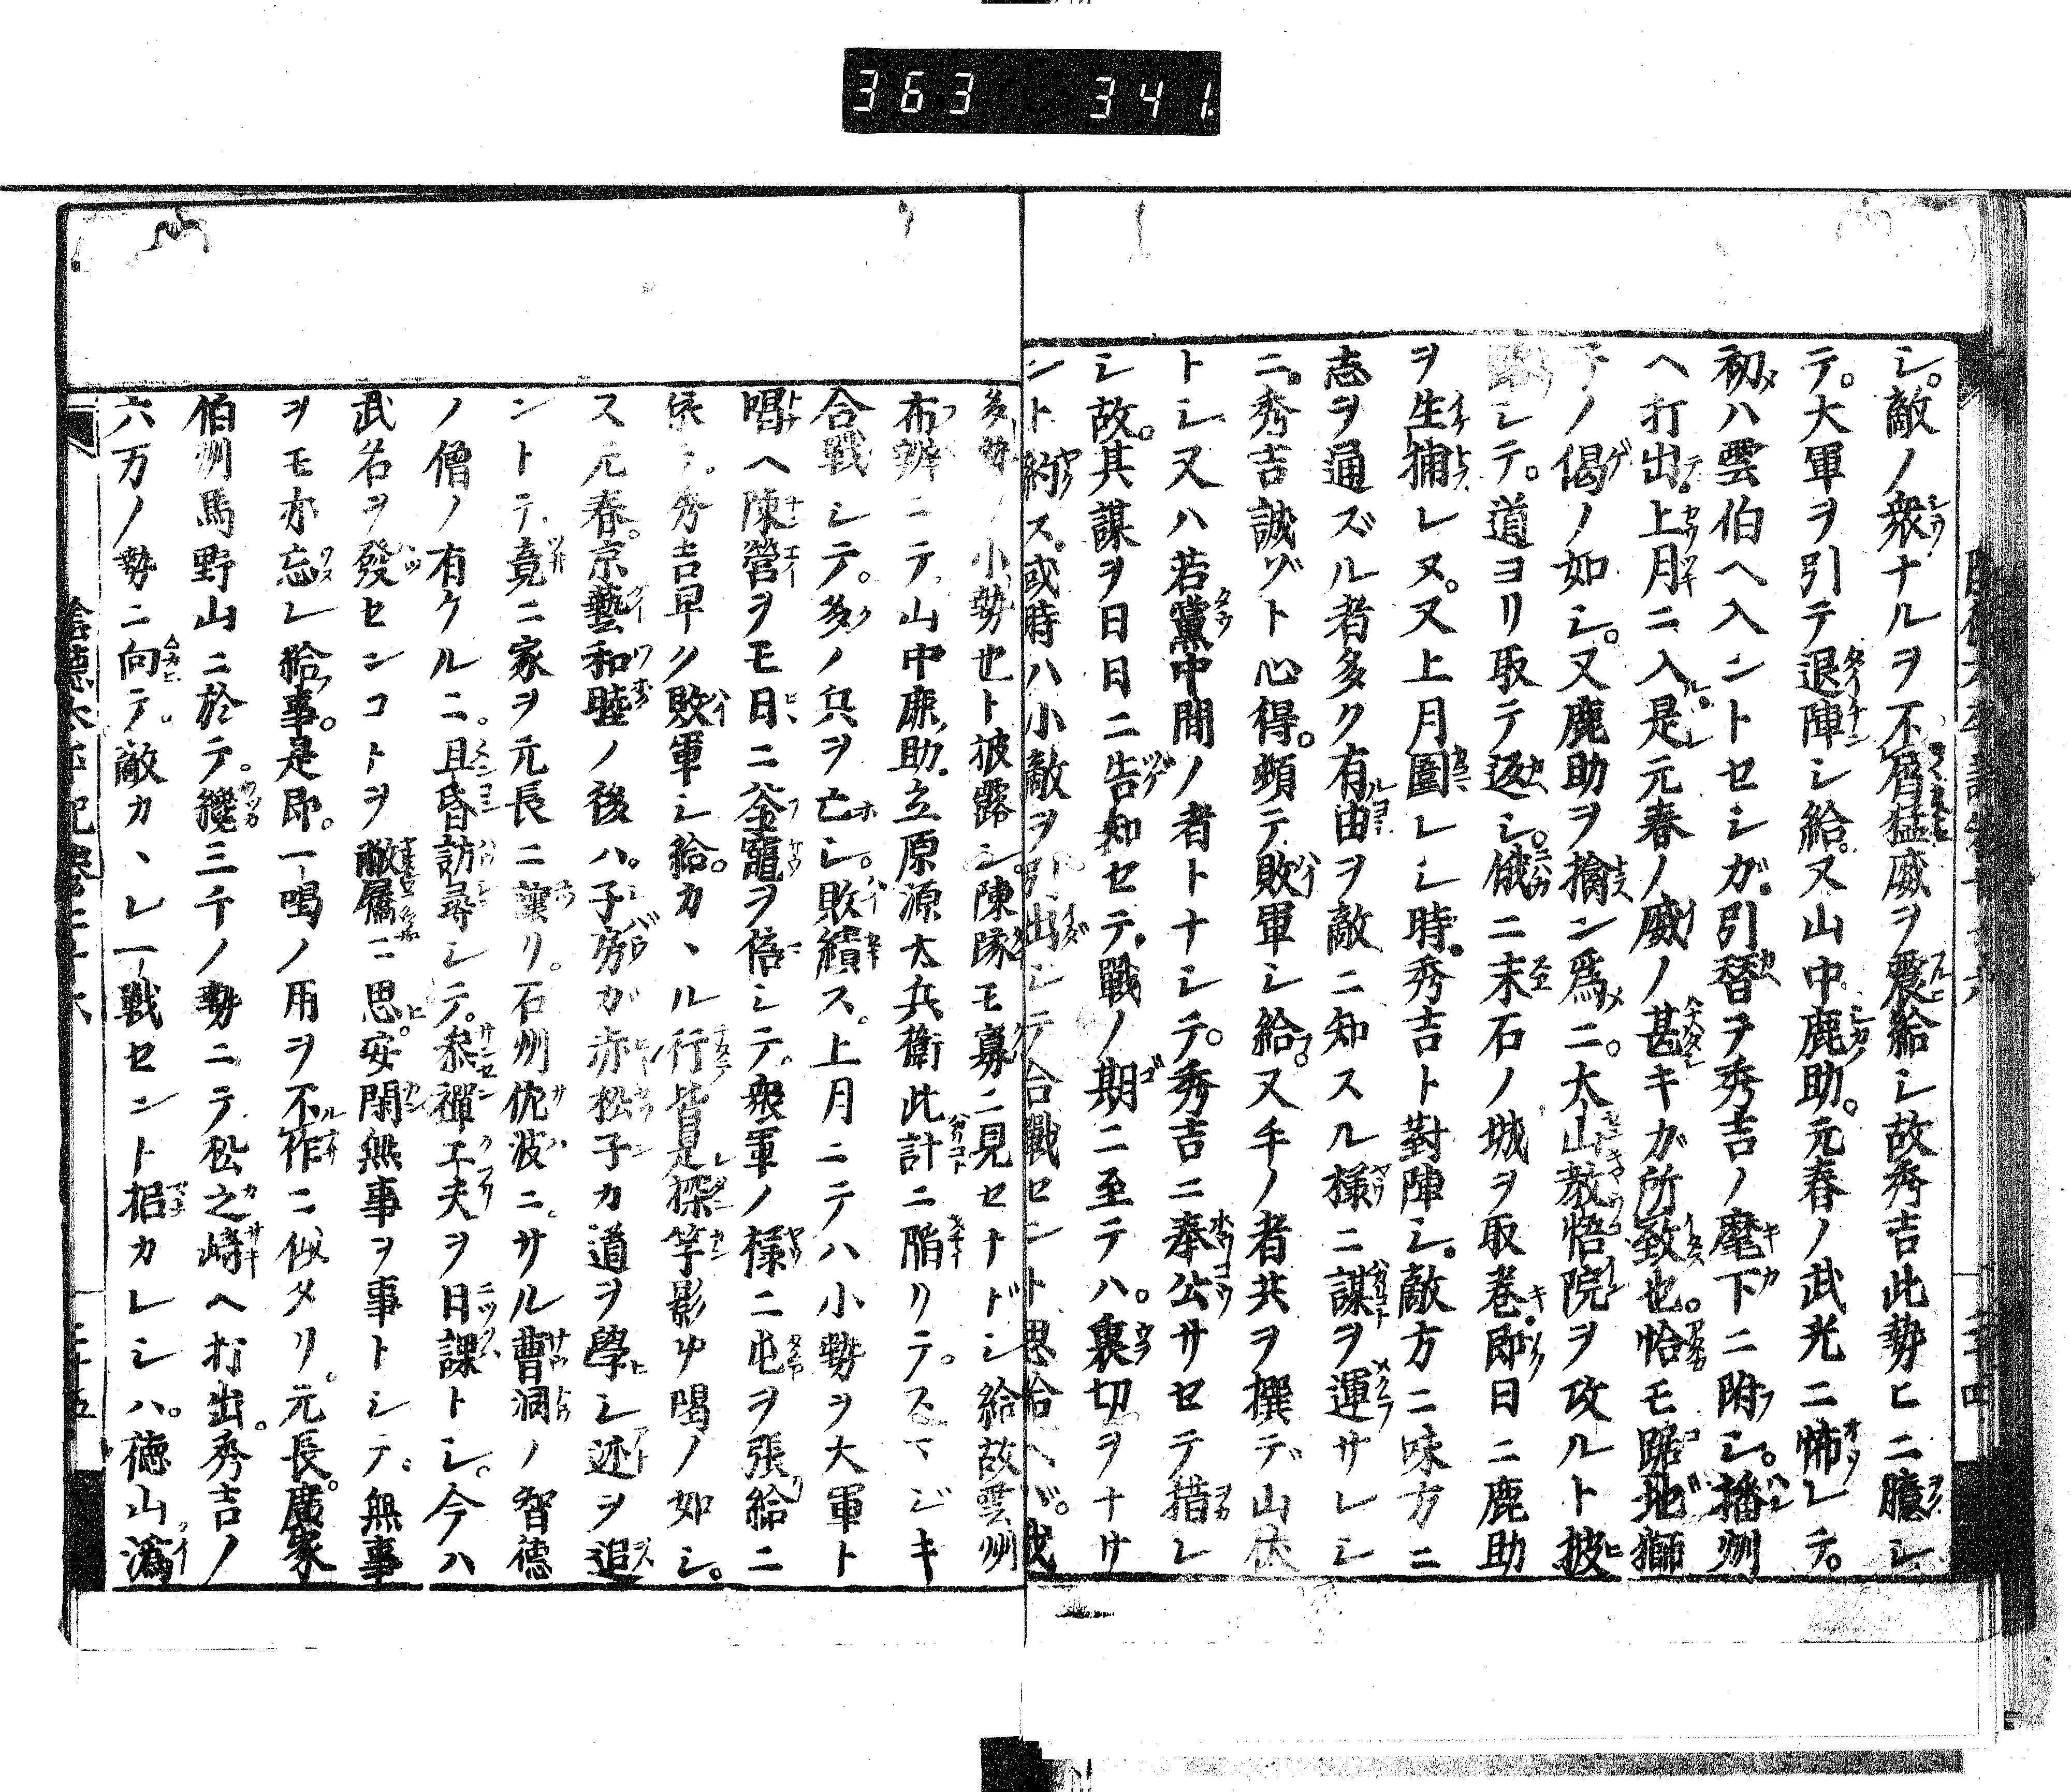 363 341.
シ。敵ノ衆ナルヲ不屑猛威ヲ震給シ故秀吉此勢ヒニ臆シ
テ。大軍ヲ引テ退陣シ給。又山中鹿助。元春ノ武光ニ怖レテ。
初ハ雲伯ヘ入ントセシガ。引替テ秀吉ノ麾下ニ附シ。播州
ヘ打出。上月ニ入。是元春ノ威ノ甚キガ所致也。恰モ踞地獅
子ノ偈ノ如シ。又鹿助ヲ擒ン爲ニ。大山教悟院ヲ攻ルト披
露シテ。道ヨリ取テ返シ。俄ニ末石ノ城ヲ取巻。即日ニ鹿助
ヲ生捕レヌ。又上月圍レシ時。秀吉ト對陣シ。敵方ニ味方ニ
志ヲ通ズル者多ク有由ヲ敵ニ知スル様ニ謀ヲ運サレシ
ニ。秀吉誠ゾト心得。頻テ敗軍シ給。又手ノ者共ヲ撰デ山伏
トシ又ハ若黨中間ノ者トナシテ。秀吉ニ奉公サセテ措レ
シ故。其謀ヲ日日ニ告知セテ。戰ノ期ニ至テハ。裏切ヲナサ
ント約ス。或時ハ小敵ヲ引出シテ合戰セント思給ヘバ。我
多勢ノ小勢也ト披露シ。陳隊モ寡ニ見セトドシ給故雲州
布辨ニテ。山中鹿助。立原源太兵衛此計ニ陷リテ。スマジキ
合戰シテ。多ノ兵ヲ亡シ。敗績ス。上月ニテハ小勢ヲ大軍ト
唱ヘ陳營ヲモ日ニ釜竈ヲ倍シテ。衆軍ノ様ニ屯ヲ張給ニ
依テ。秀吉早ク敗軍シ給。カヽル行皆是探竿影草喝ノ如シ。
ス元春。京藝和睦ノ後ハ。子房ガ赤松子カ道ヲ學シ迹ヲ追
ントテ。竟ニ家ヲ元長ニ讓リ。石州佗波ニ。サル曹洞ノ智德
ノ僧ノ有ケルニ。且昏訪尋シテ。參禪工夫ヲ日課トシ。今ハ
武名ヲ發センコトヲ敝屩ニ思。安閑無事ヲ事トシテ。無事
ヲモ亦忘レ給事。是即。一喝ノ用ヲ不作ニ似タリ。元長。廣家
伯州馬野山ニ於テ。纔三千ノ勢ニテ松之崎ヘ打出。秀吉ノ
六万ノ勢ニ向テ。敵カヽレ一戰セント招カレシハ。德山潙
陰德太平記巻